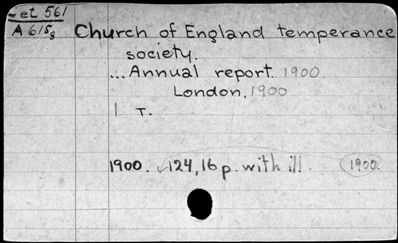 et 561
A 615g
Church of England temperance
society.
...Annual report. 1900
London, 1900
1 T.
1900. 124, 16 p. with ill. 1900